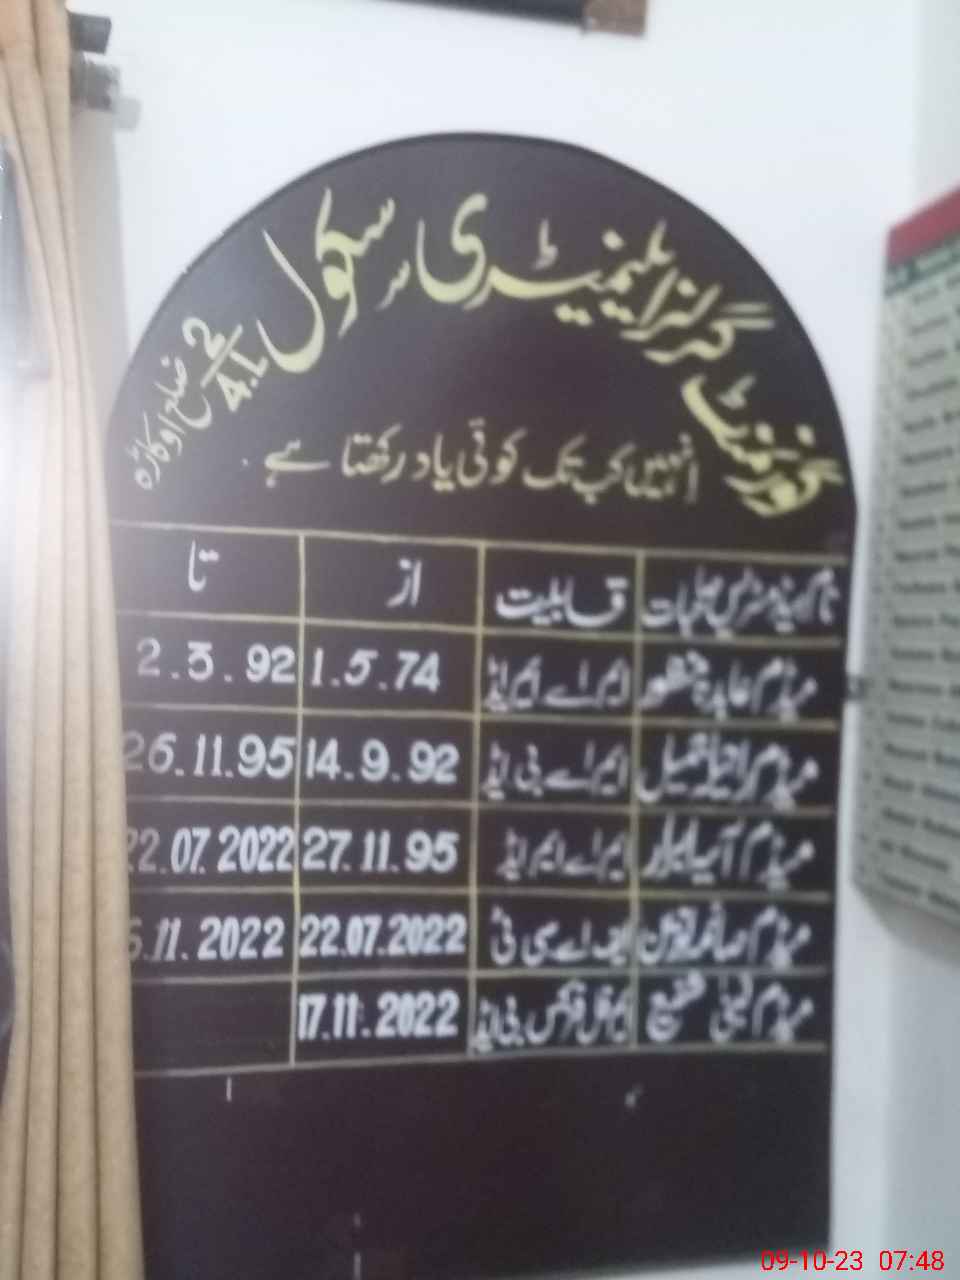 گورنمنٹ گرلز ایلیمنٹری سکول 2/4.L ضلع اوکاڑہ
انہیں کب تک کوئی یاد رکھتا ہے
نام ہیڈ مسٹریس صاحبات قابلیت از تا
میڈم عابدہ منظور ایم اے ایم ایڈ 1.5.74 2.3.92
میڈم ایم اے بی ایڈ 14.9.92 26.11.95
میڈم آسیہ ایم اے ایم ایڈ 27.11.95 22.07.2022
میڈم صائمہ ایف اے سی ٹی 22.07.2022 6.11.2022
میڈم لبنیٰ شفیع بی ایڈ 17.11.2022
09-10-23 07:48